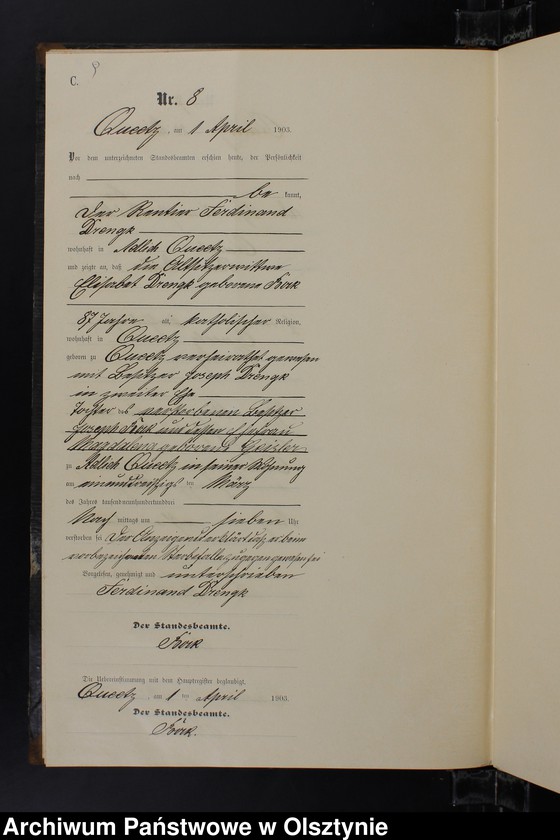 C.
8
Nr. 8
Queetz, am 1 April 1903.
Vor dem unterzeichneten Standesbeamten erschien heute, der Persönlichkeit
nach
be kannt,
Der Rentier Ferdinand
Drengk
wohnhaft in Adlich Queetz
und zeigte an, daß die Altsitzerwittwe
Elisabet Drengk geborene
87 Jahre alt, katholischer Religion,
wohnhaft in Queetz
geboren zu Queetz verheirathet gewesen
mit Besitzer Joseph Drengk
in zweiter Ehe
Tochter des verstorbenen Besitzer
Joseph und dessen Ehefrau
Magdalena geborene Geizler
zu Adlich Queetz in seiner Wohnung
am einunddreißigsten März
des Jahres tausendneunhundertunddrei
Nach mittags um sieben Uhr
verstorben sei Der Anzeigende erklärt daß er beim
vorbezeichneten Sterbefalle zugegen gewesen sei
Vorgelesen, genehmigt und unterschrieben
Ferdinand Drengk
Der Standesbeamte.
Die Uebereinstimmung mit dem Hauptregister beglaubigt.
Queetz am 1 ten April 1903.
Der Standesbeamte.
Archiwum Państwowe w Olsztynie